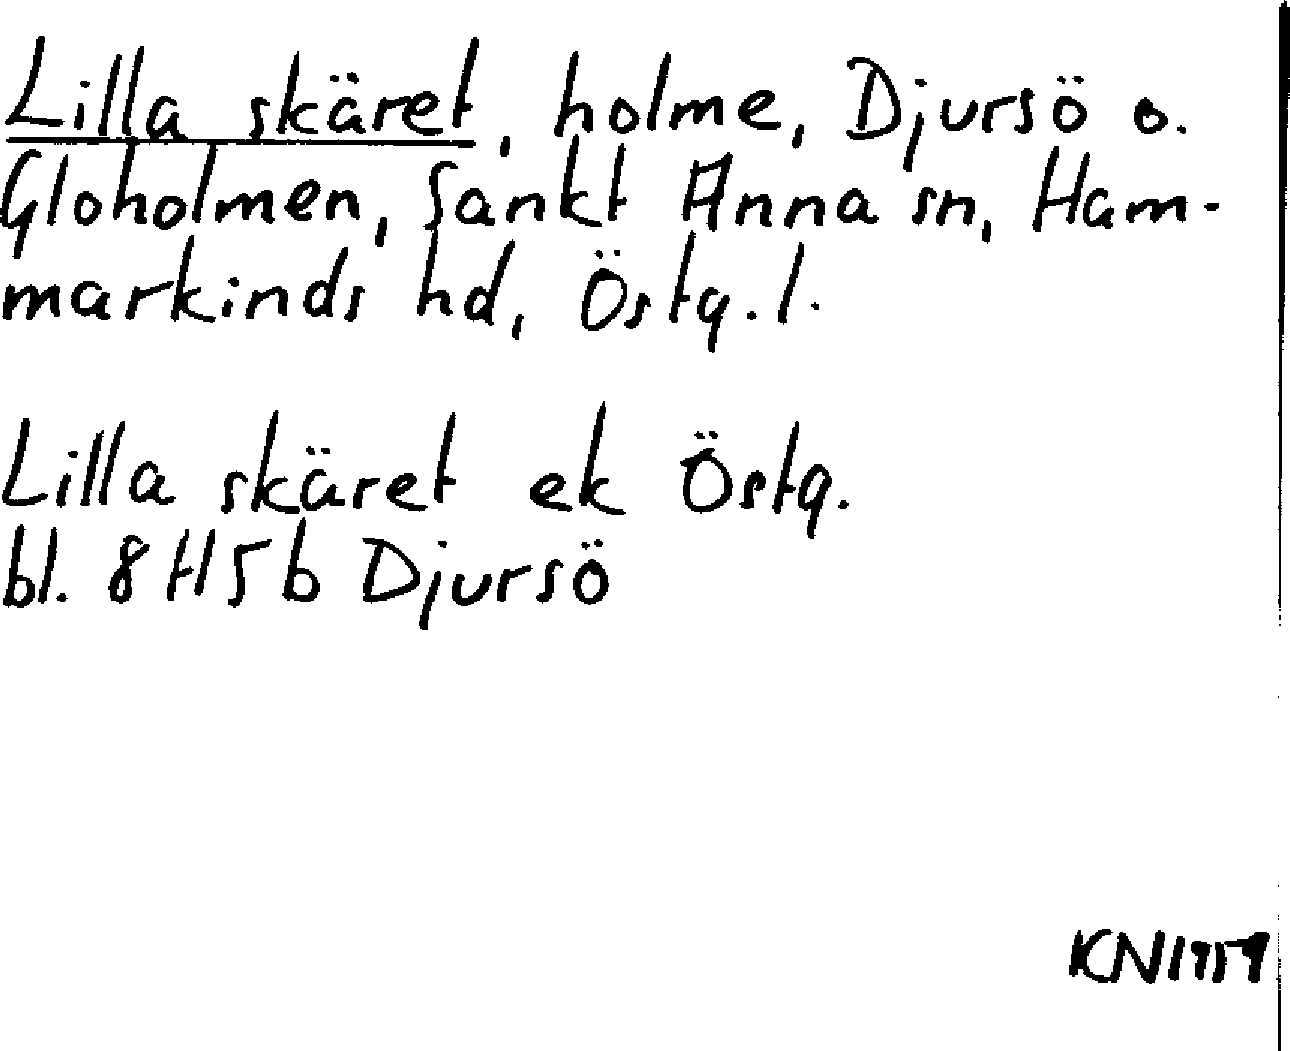 Lilla skäret, holme, Djursö o.
Gloholmen, Sankt Anna sn, Ham-
markinds hd, Östg. l.
Lilla skäret ek Östg.
bl. 8H5b Djursö